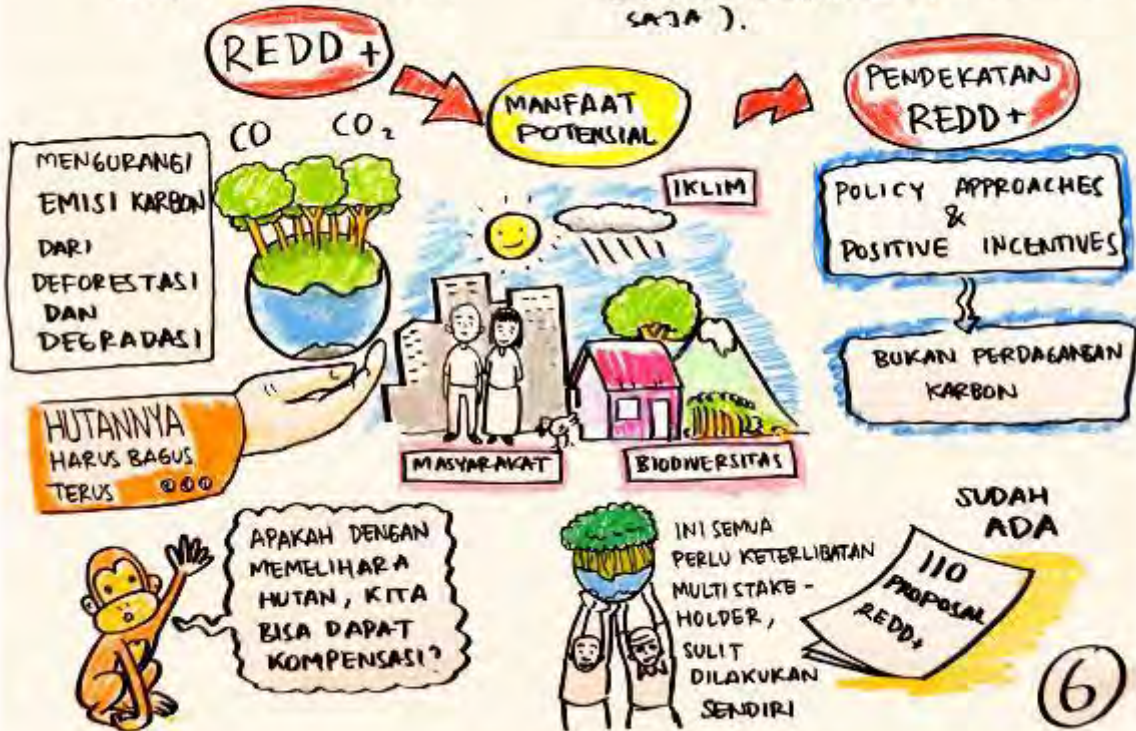 SAJA ).
REDD +
MANFAAT
POTENSIAL
PENDEKATAN
REDD+
CO CO2
MENGURANGI
EMISI KARBON
DARI
DEFORESTASI
DAN
DEGRADASI
IKLIM
POLICY APPROACHES
&
POSITIVE INCENTIVES
BUKAN PERDAGANGAN
KARBON
HUTANNYA
HARUS BAGUS
TERUS
MASYARAKAT
BIODIVERSITAS
APAKAH DENGAN
MEMELIHARA
HUTAN, KITA
BISA DAPAT
KOMPENSASI?
INI SEMUA
PERLU KETERLIBATAN
MULTI STAKE -
HOLDER,
SULIT
DILAKUKAN
SENDIRI
SUDAH
ADA
110
PROPOSAL
REDD+
6